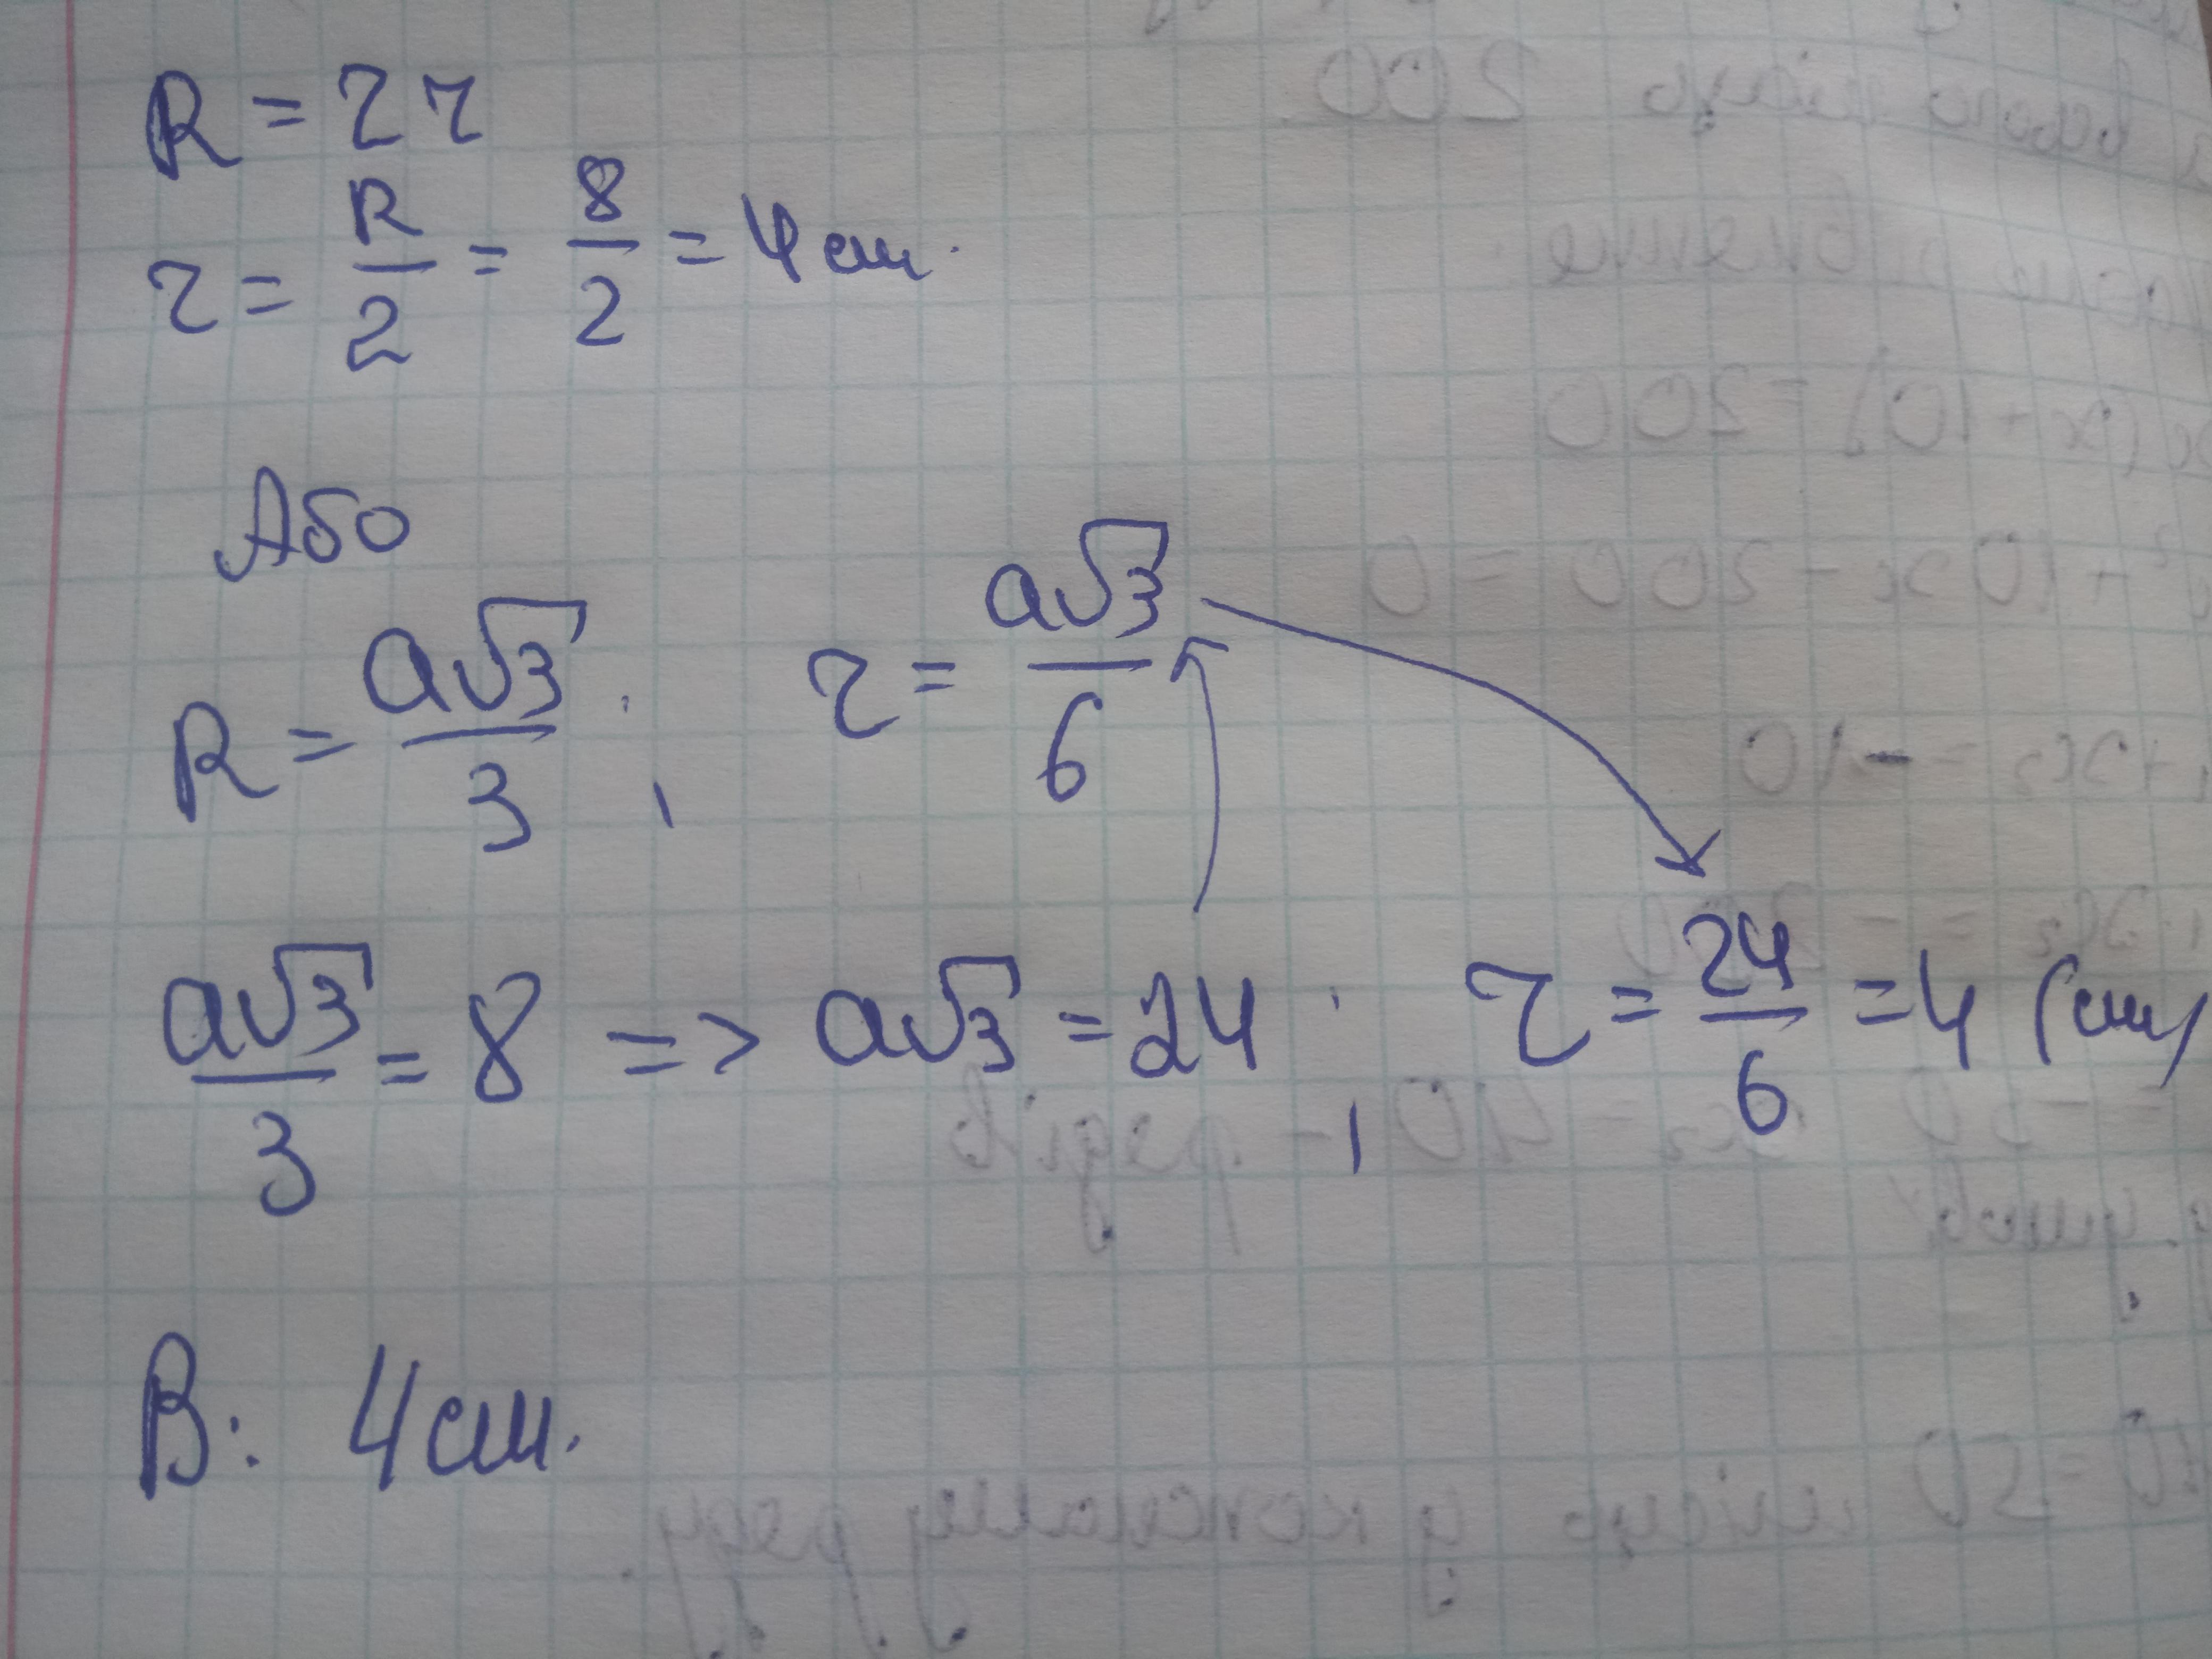 R = 2r
r = R/2 = 8/2 = 4 см.
Або
R = a√3/3 ; r = a√3/6
a√3/3 = 8 => a√3 = 24 ; r = 24/6 = 4 (см)
В: 4 см.